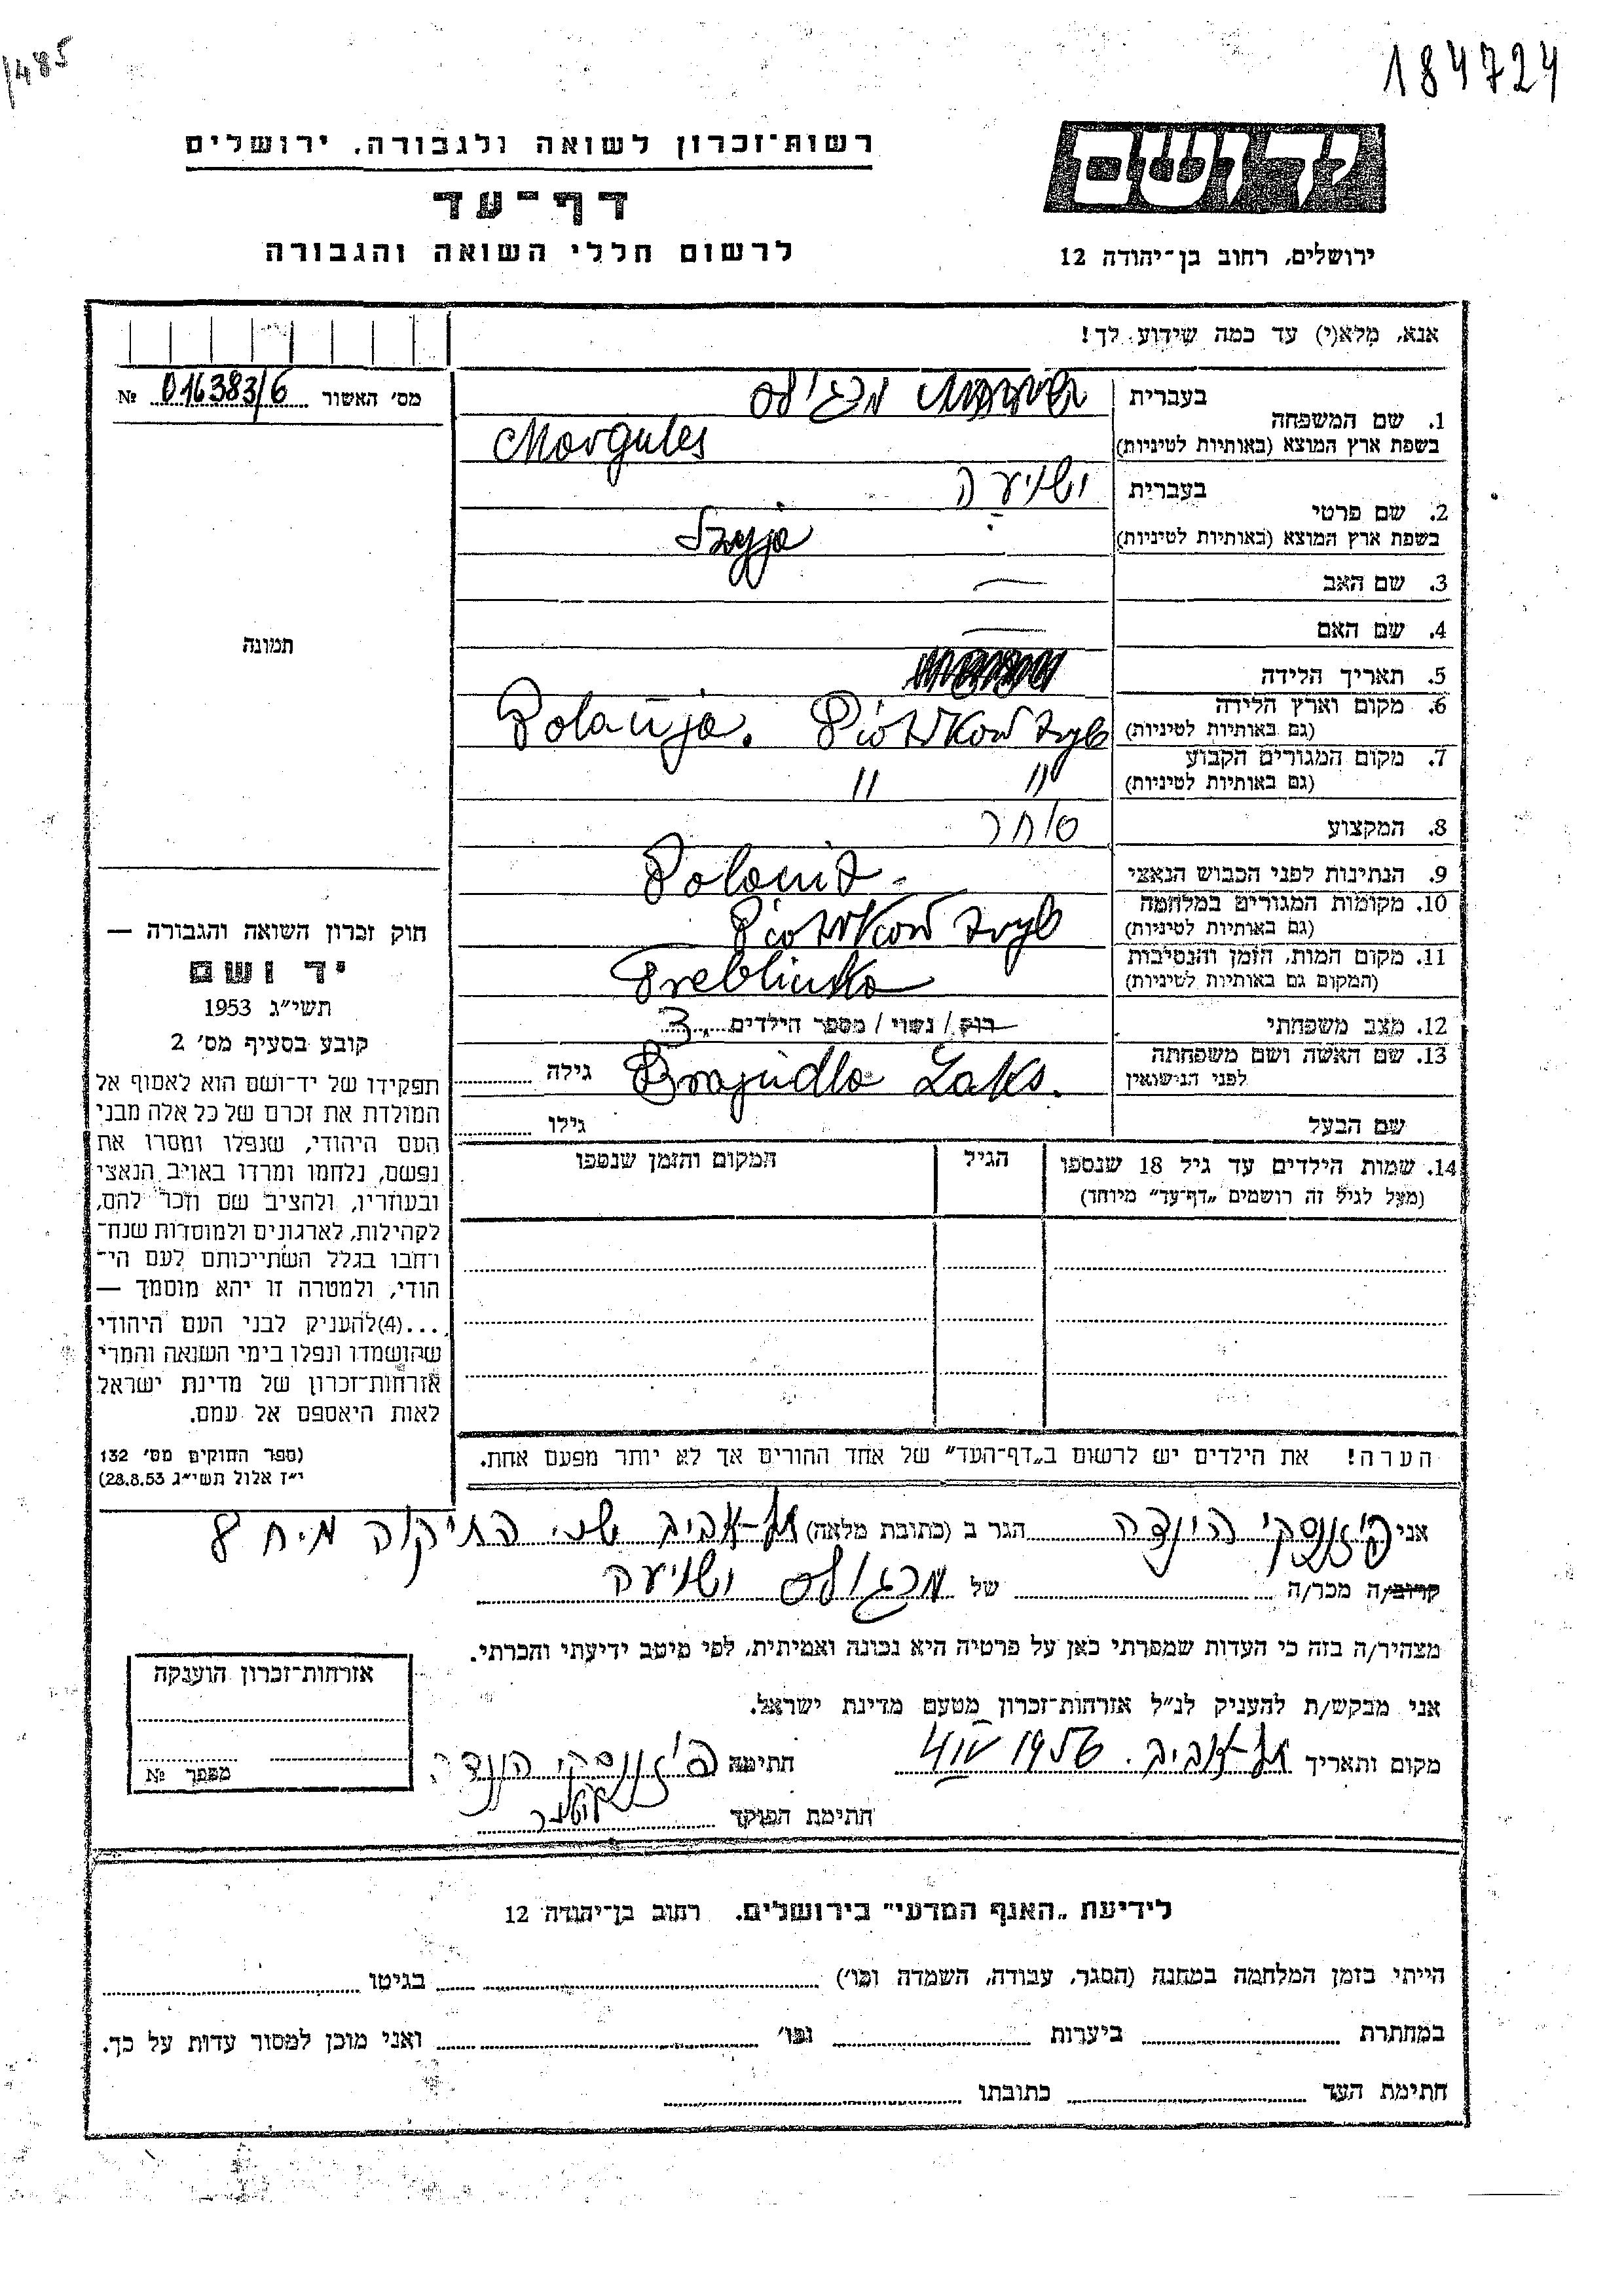 1485
184724
יד ושם
רשות־זכרון לשואה ולגבורה, ירושלים
דף־עד
לרשום חללי השואה והגבורה
ירושלים, רחוב בן־יהודה 12
אנא, מלא(י) עד כמה שידוע לך!
מס' האשור 016383/6 №
1. שם המשפחה
בעברית מרגולס
בשפת ארץ המוצא (באותיות לטיניות) Morgules
2. שם פרטי
בעברית ישעיה
בשפת ארץ המוצא (באותיות לטיניות) Szyja
3. שם האב —
4. שם האם —
5. תאריך הלידה
6. מקום וארץ הלידה
(גם באותיות לטיניות) Polanja. Piotrkow tryb
7. מקום המגורים הקבוע
(גם באותיות לטיניות) " "
8. המקצוע סוחר
9. הנתינות לפני הכבוש הנאצי Polanit.
10. מקומות המגורים במלחמה
(גם באותיות לטיניות) Piotrkow tryb
11. מקום המות, הזמן והנסיבות
(המקום גם באותיות לטיניות) Treblinka
12. מצב משפחתי רוק / נשוי / מספר הילדים 3
13. שם האשה ושם משפחתה
לפני הנישואין Brajndla Laks. גילה
שם הבעל גילו
14. שמות הילדים עד גיל 18 שנספו הגיל המקום והזמן שנספו
(מעל לגיל זה רושמים „דף־עד" מיוחד)
הערה! את הילדים יש לרשום ב„דף־העד" של אחד ההורים אך לא יותר מפעם אחת.
תמונה
חוק זכרון השואה והגבורה —
יד ושם
תשי"ג 1953
קובע בסעיף מס' 2
תפקידו של יד־ושם הוא לאסוף אל
המולדת את זכרם של כל אלה מבני
העם היהודי, שנפלו ומסרו את
נפשם, נלחמו ומרדו באויב הנאצי
ובעוזריו, ולהציב שם וזכר להם,
לקהילות, לארגונים ולמוסדות שנח־
רבו בגלל השתייכותם לעם הי־
הודי, ולמטרה זו יהא מוסמך —
...(4)להעניק לבני העם היהודי
שהושמדו ונפלו בימי השואה והמרי
אזרחות־זכרון של מדינת ישראל
לאות היאספם אל עמם.
(ספר החוקים מס' 132
י"ז אלול תשי"ג 28.8.53)
אני הינדה הגר ב (כתובת מלאה) תל-אביב שכ. התיקוה
קרוב/ה מכר/ה של מרגולס ישעיה
מצהיר/ה בזה כי העדות שמסרתי כאן על פרטיה היא נכונה ואמיתית, לפי מיטב ידיעתי והכרתי.
אני מבקש/ת להעניק לנ"ל אזרחות־זכרון מטעם מדינת ישראל.
מקום ותאריך תל-אביב. 1956 חתימה הינדה
חתימת הפוקד
אזרחות־זכרון הוענקה
מספר №
לידיעת „האגף המדעי" בירושלים, רחוב בן־יהודה 12
הייתי בזמן המלחמה במחנה (הסגר, עבודה, השמדה וכו') בגיטו
במחתרת ביערות וכו' ואני מוכן למסור עדות על כך.
חתימת העד כתובתו